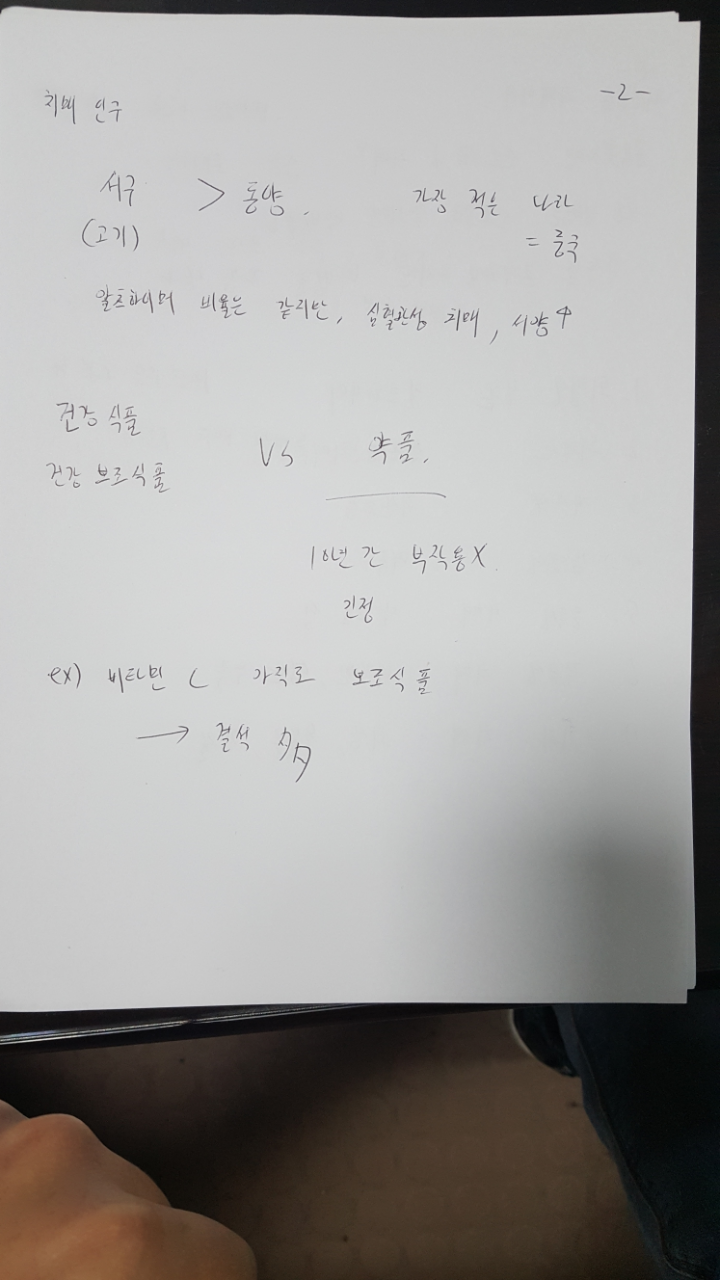 -2-
치매 인구
서구 > 동양.
(고기)
가장 적은 나라
= 중국
알츠하이머 비율는 같지만, 심혈관성 치매, 서양↑
건강식품
건강 보조식품
VS 약품.
10년간 부작용X.
인정
ex) 비타민 C 가릭로 보조식품
→ 결석 多